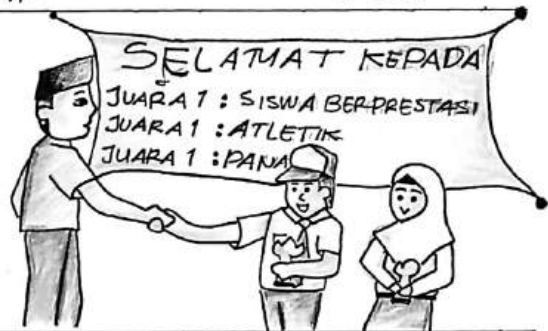 SELAMAT KEPADA
JUARA 1 : SISWA BERPRESTASI
JUARA 1 : ATLETIK
JUARA 1 : PANA